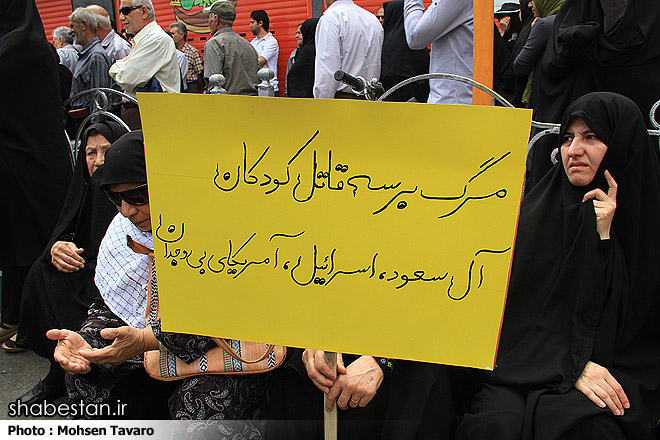 مرگ بر سه قاتل کودکان
آل سعود، اسرائیل، آمریکای بی وجدان
shabestan.ir
Photo : Mohsen Tavaro